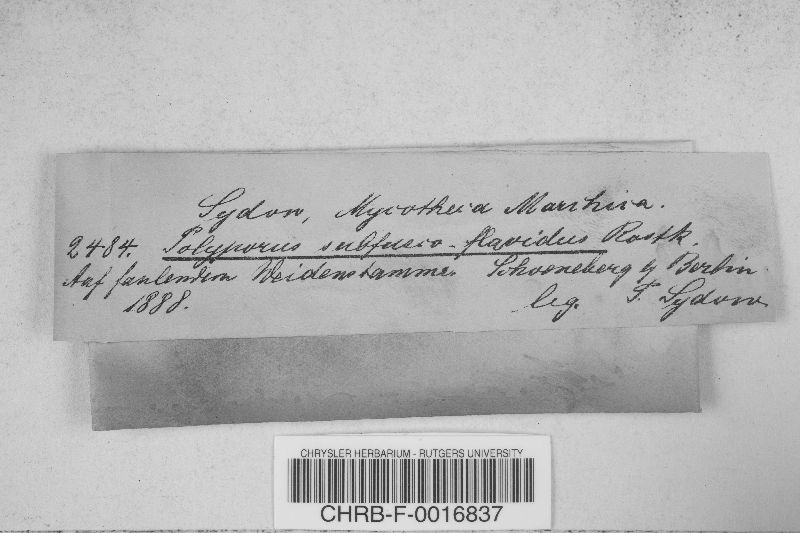 Sydow, Mycotheca Marchica.
2484. Polyporus subfusco-flavidus Rostk.
Auf faulendem Weidenstamme. Schoeneberg b/ Berlin.
1888. leg. P. Sydow.
CHRYSLER HERBARIUM - RUTGERS UNIVERSITY
CHRB-F-0016837